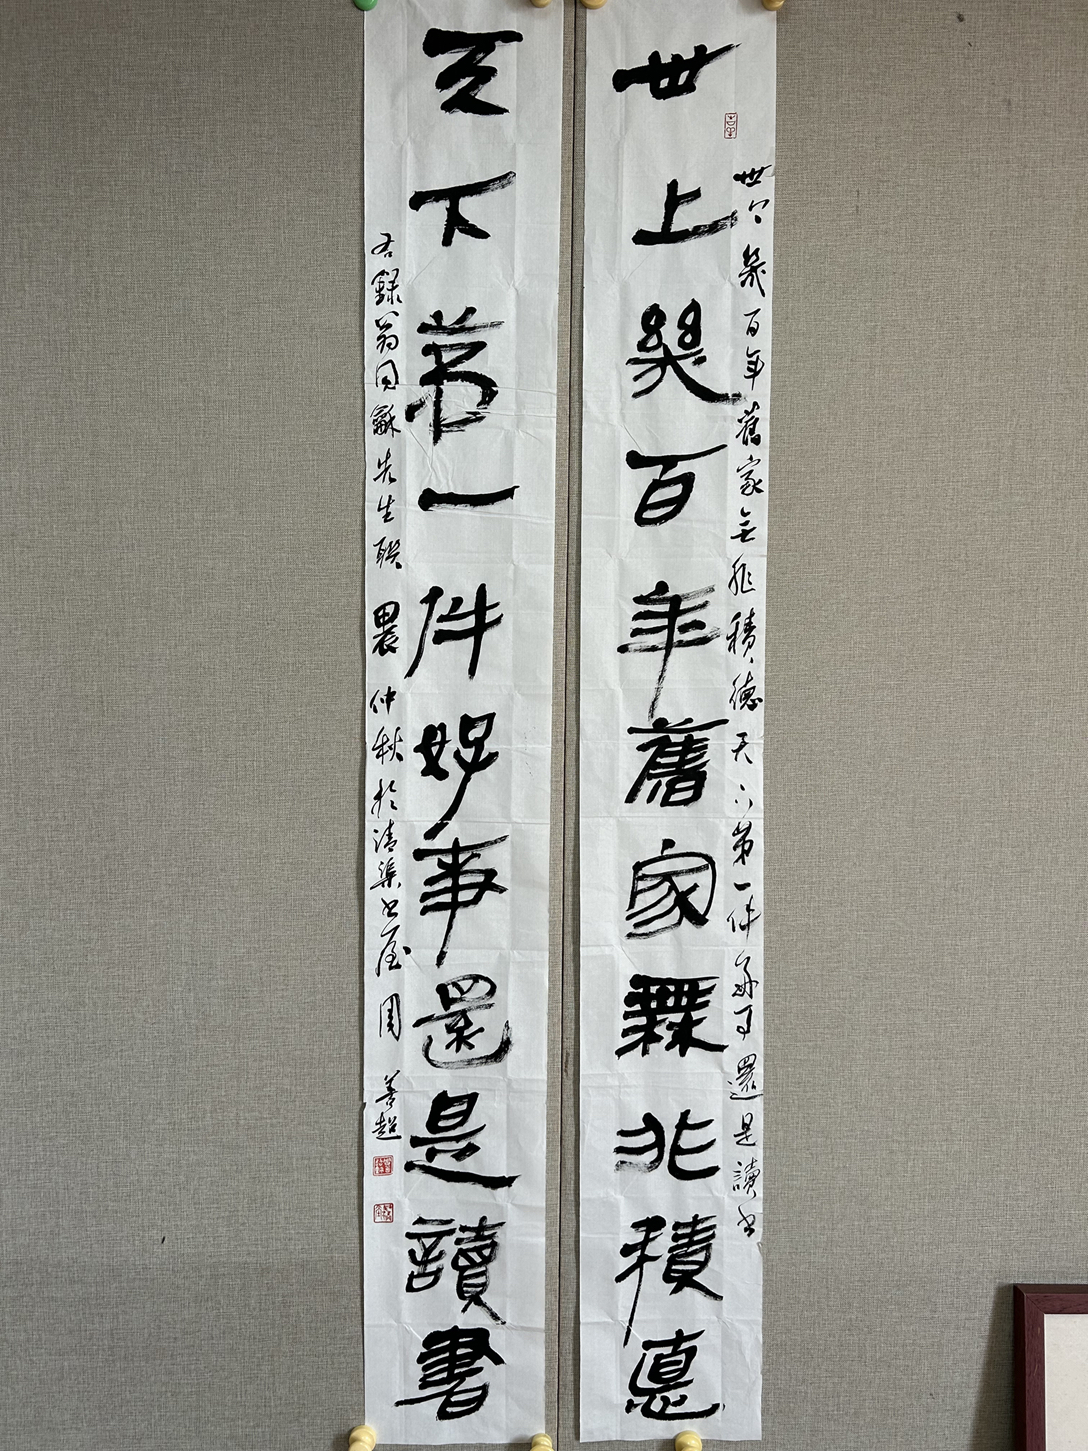 世上幾百年舊家無非積德天下第一件好事還是讀書
世上幾百年舊家無非積悳
天下第一件好事還是讀書
右錄翁同龢先生聯 甲辰仲秋於清渠書屋 周善超